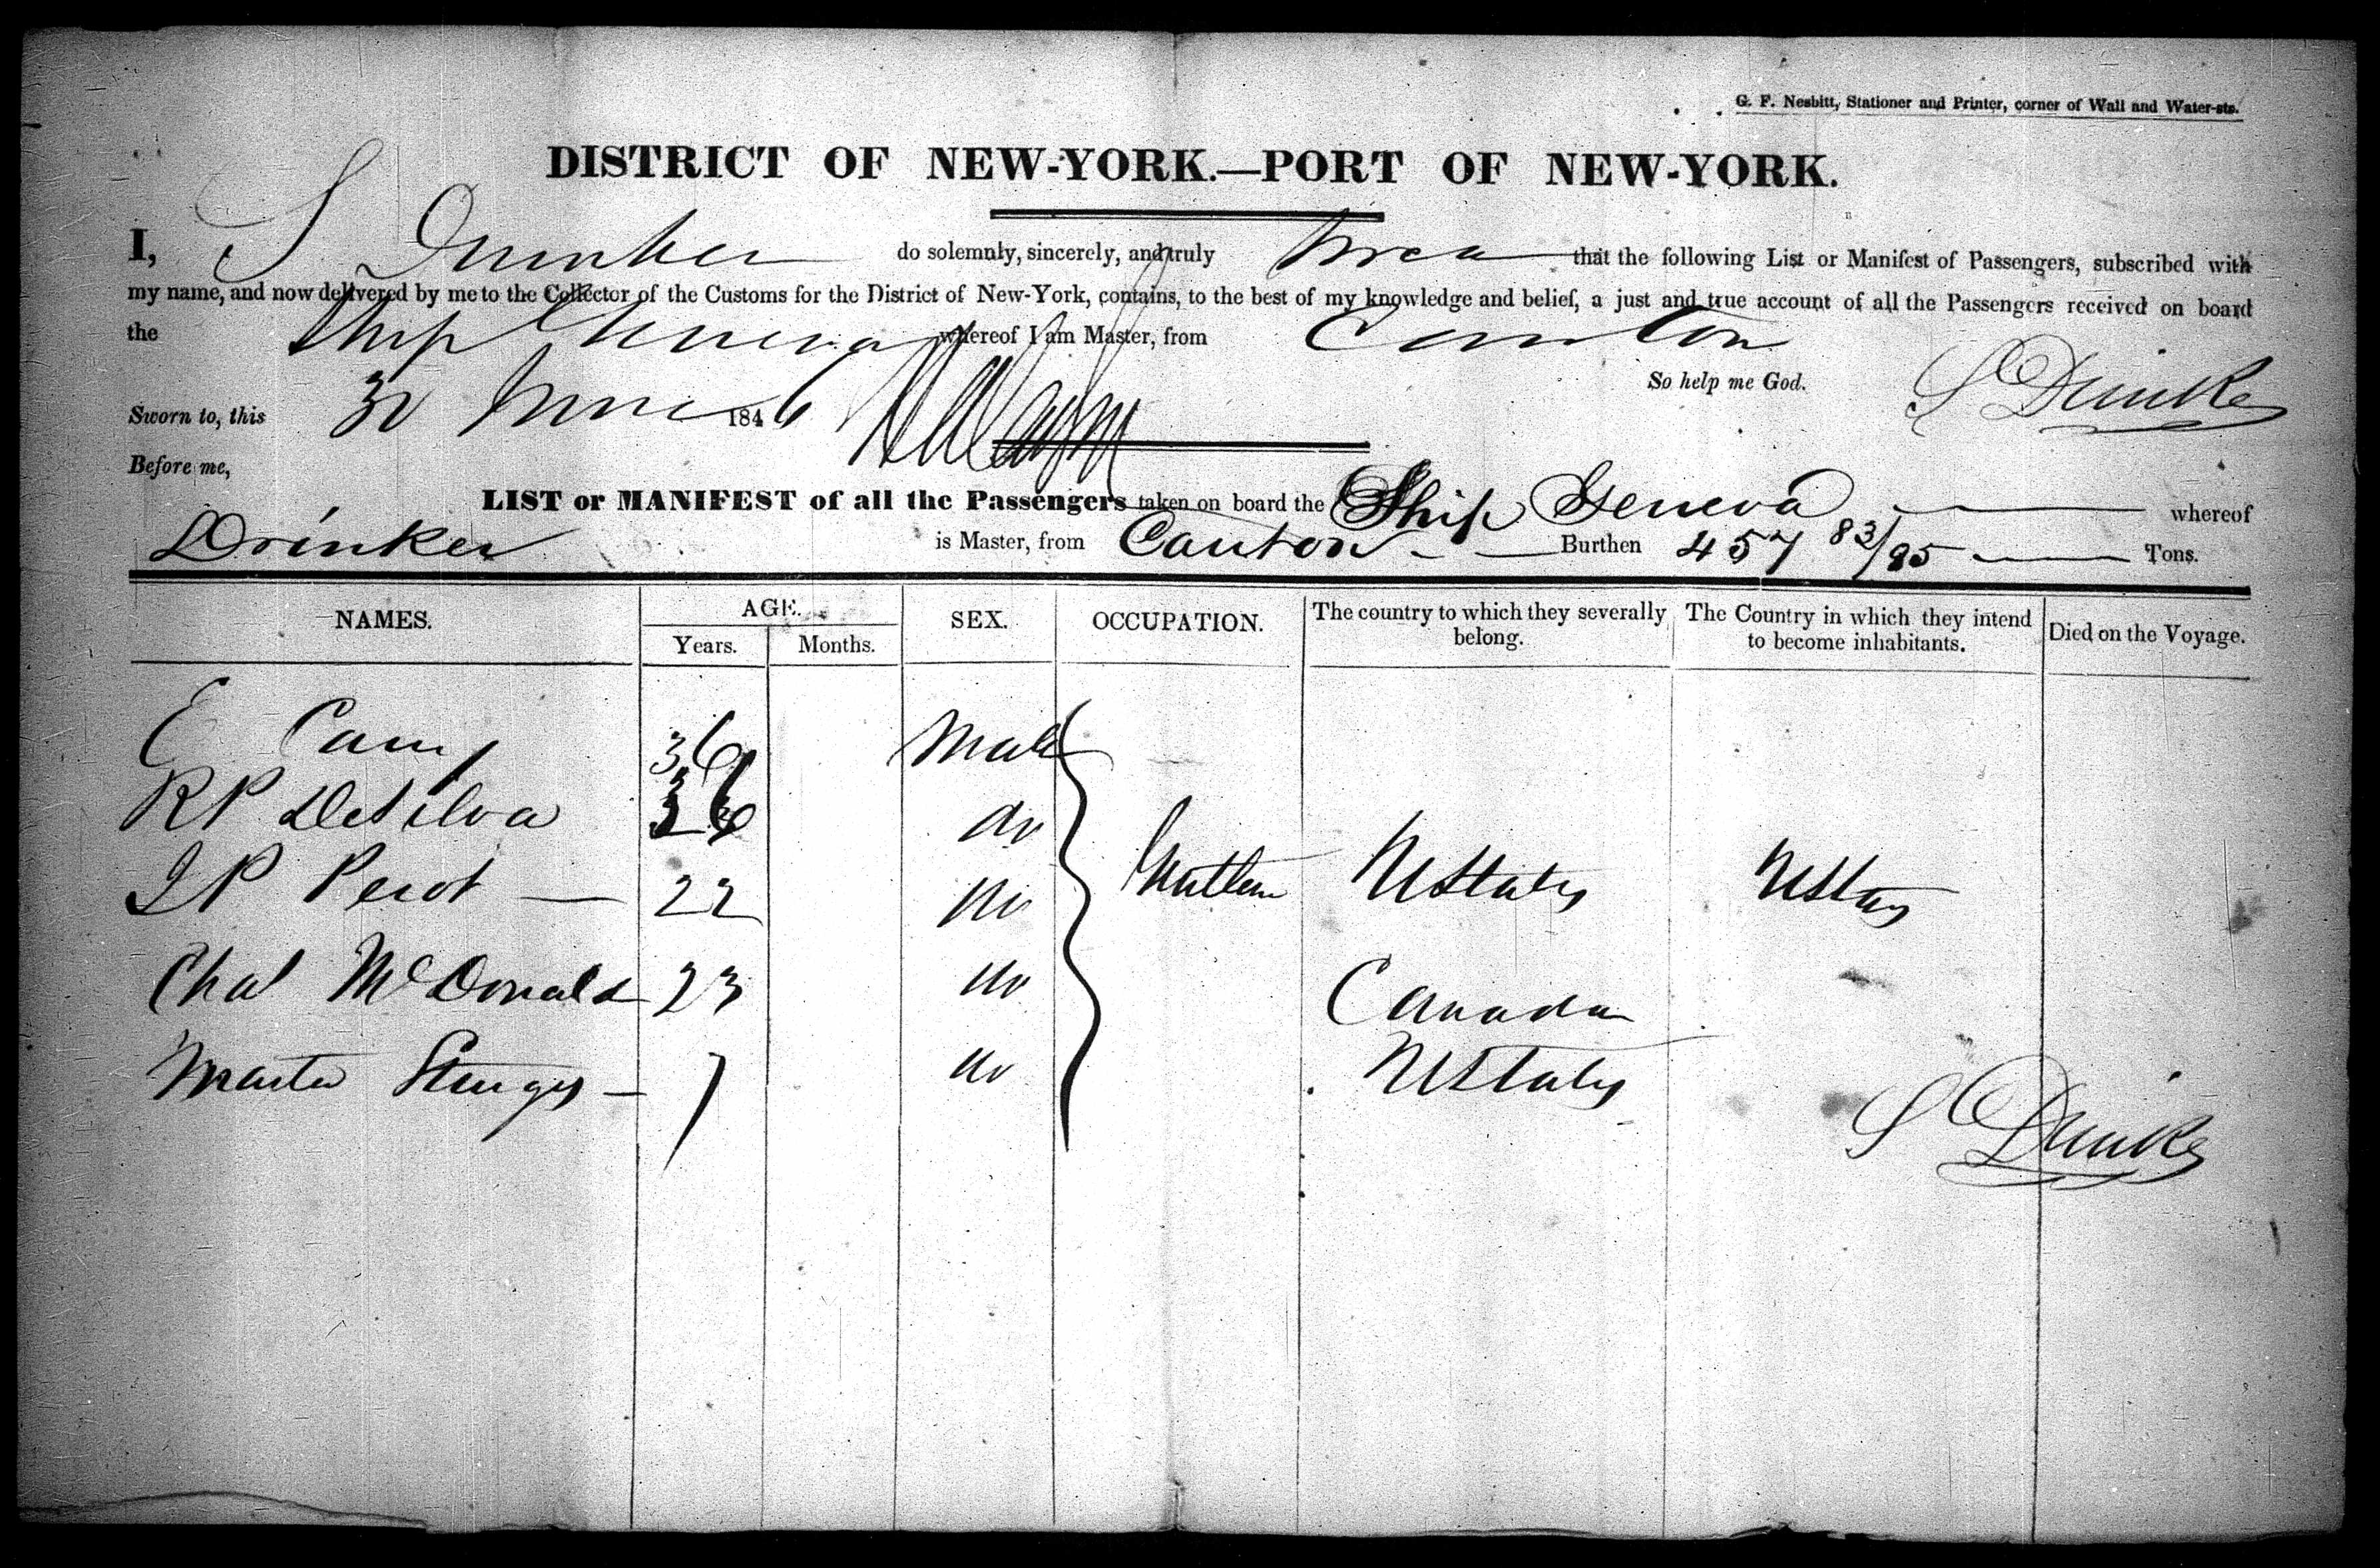 G. F. Nesbitt, Stationer and Printer, corner of Wall and Water-sts.
DISTRICT OF NEW-YORK.—PORT OF NEW-YORK.
I, S Drinker do solemnly, sincerely, and truly that the following List or Manifest of Passengers, subscribed with
my name, and now delivered by me to the Collector of the Customs for the District of New-York, contains, to the best of my knowledge and belief, a just and true account of all the Passengers received on board
the Ship Geneva whereof I am Master, from Canton
So help me God. S Drinker
Sworn to, this 30 184 6
Before me,
LIST or MANIFEST of all the Passengers taken on board the Ship Geneva whereof
Drinker is Master, from Canton Burthen 457 83/95 Tons.
NAMES. AGE. SEX. OCCUPATION. The country to which they severally belong. The Country in which they intend to become inhabitants. Died on the Voyage.
Years. Months.
E Camp 36 Male
RP DeSilva 36 do
P Perot — 22 do UStates UStates
Chas McDonald 23 do Canada
Master Sturges — 7 do UStates
S Drinker